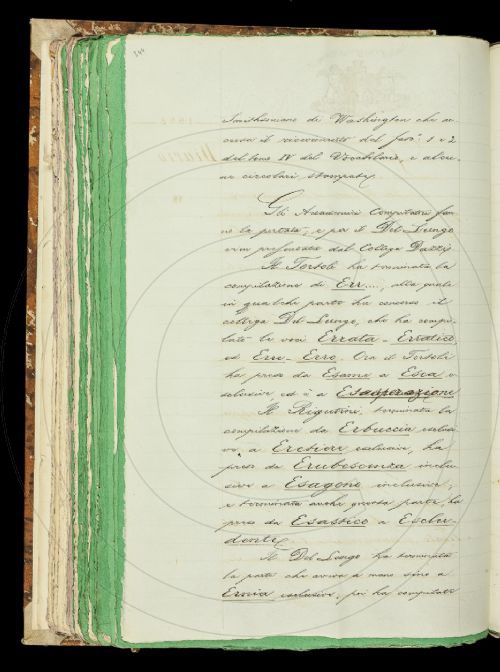 Smithsoniano di Washington che ac-
cusa il ricevimento del fasc. 1 e 2
del tomo IV del Vocabolario, e alcu-
ne circolari stampate.
Gli Accademici Compilatori fan-
no la portata, e per il Del Lungo
vien presentata dal Collega Dazzi.
Il Tortoli ha terminata la
compilazione di Err...., alla quale
in qualche parte ha concorso il
collega Del Lungo, che ha compi-
lato le voci Errata - Erratico
ed Erro - Erro. Ora il Tortoli
ha preso da Esame a Esca e-
sclusive, ed è a Esasperazione
Il Rigutini, terminata la
compilazione da Erbuccia esclusi-
vo a Eretico esclusive, ha
preso da Erubescenza inclu-
sive a Esagono inclusive,
e terminata anche questa parte, ha
preso da Esastico a Esclu-
dente.
Il Del Lungo ha terminata
la parte che aveva a mano sino a
Ernia esclusive, poi ha compilato